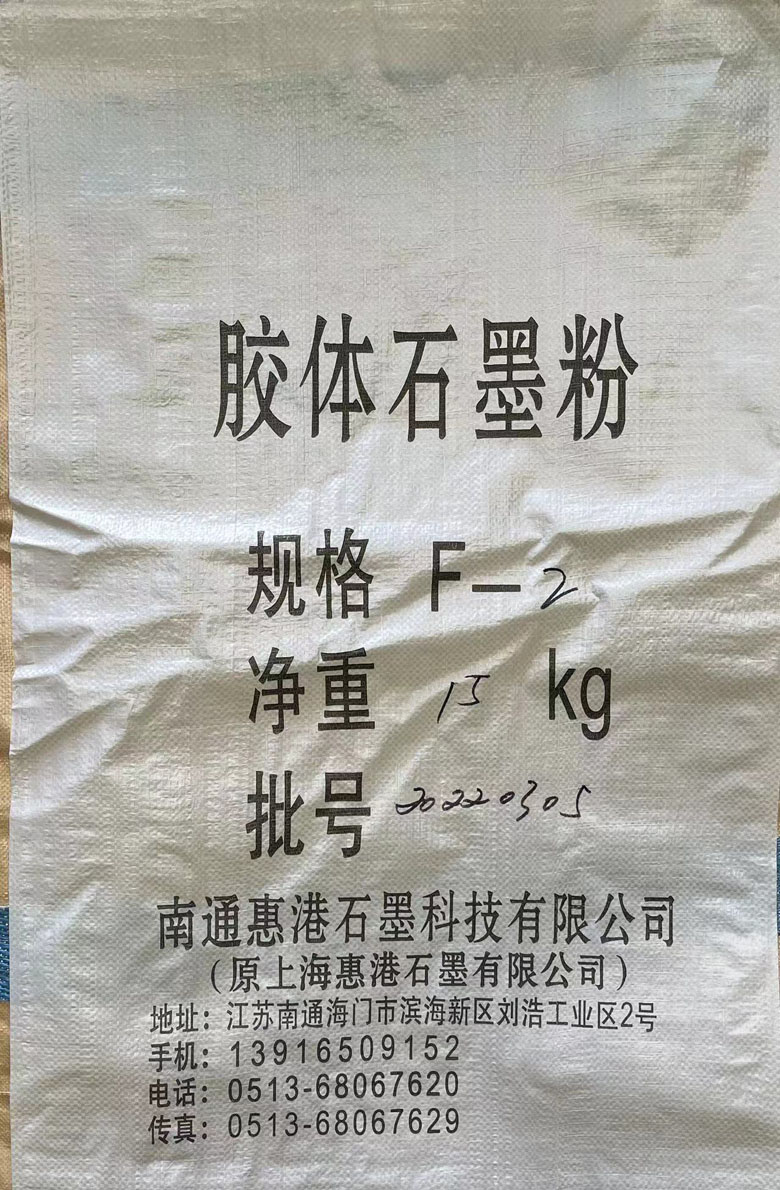 胶体石墨粉
规格 F-2
净重 15 kg
批号 20220305
南通惠港石墨科技有限公司
(原上海惠港石墨有限公司)
地址：江苏南通海门市滨海新区刘浩工业区2号
手机：13916509152
电话：0513-68067620
传真：0513-68067629